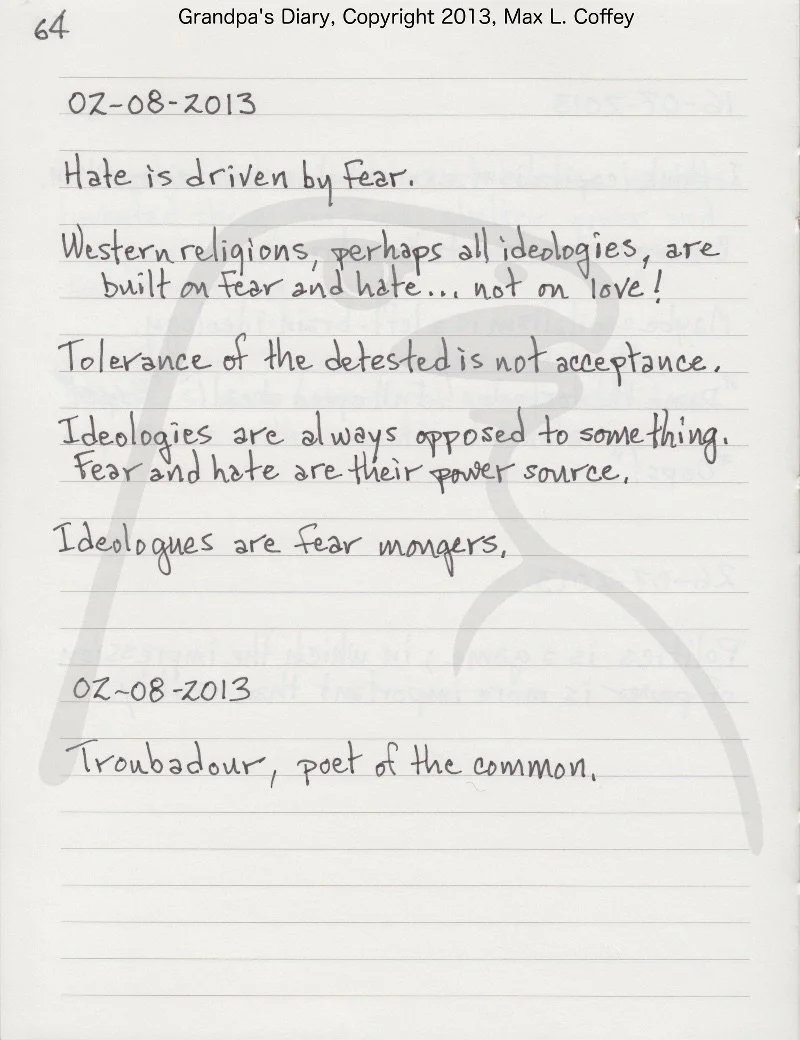 64
Grandpa's Diary, Copyright 2013, Max L. Coffey
02-08-2013
Hate is driven by fear.
Western religions, perhaps all ideologies, are
built on fear and hate... not on love!
Tolerance of the detested is not acceptance.
Ideologies are always opposed to something.
Fear and hate are their power source.
Ideologues are fear mongers.
02-08-2013
Troubadour, poet of the common.